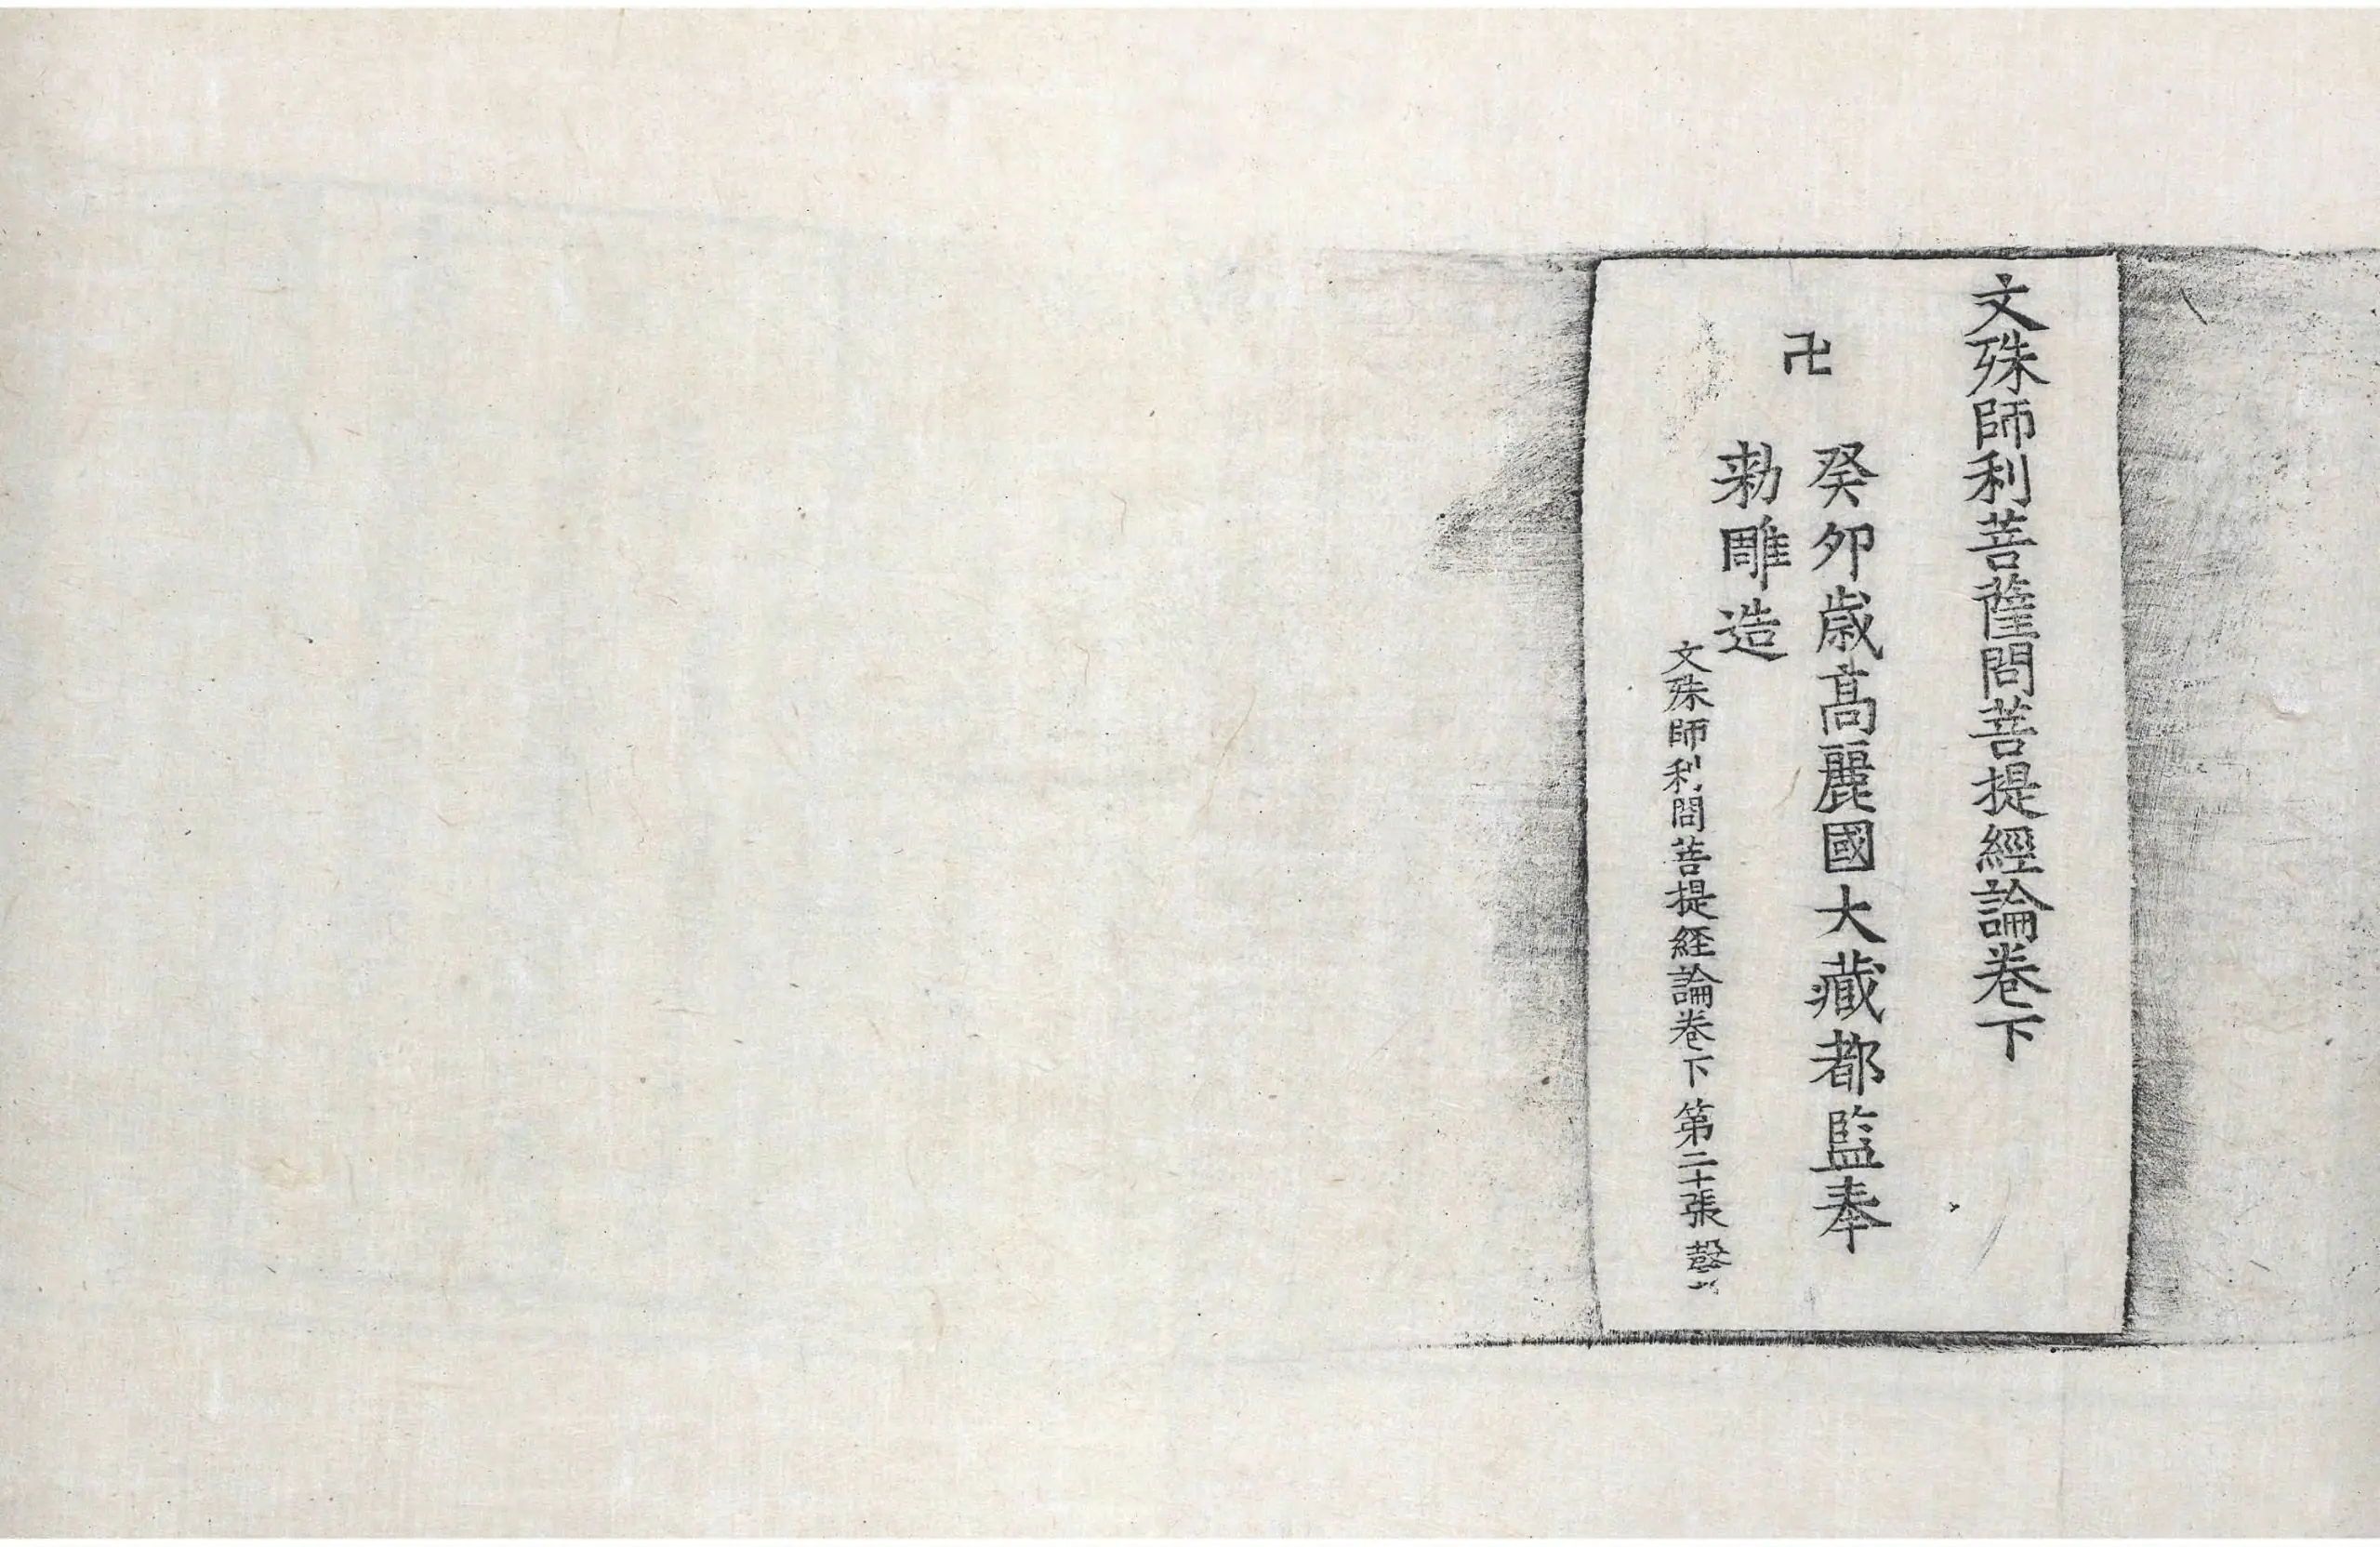 文殊師利菩薩問菩提經論卷下
卍
癸卯歲高麗國大藏都監奉
勅雕造
文殊師利問菩提経論卷下 第二十張